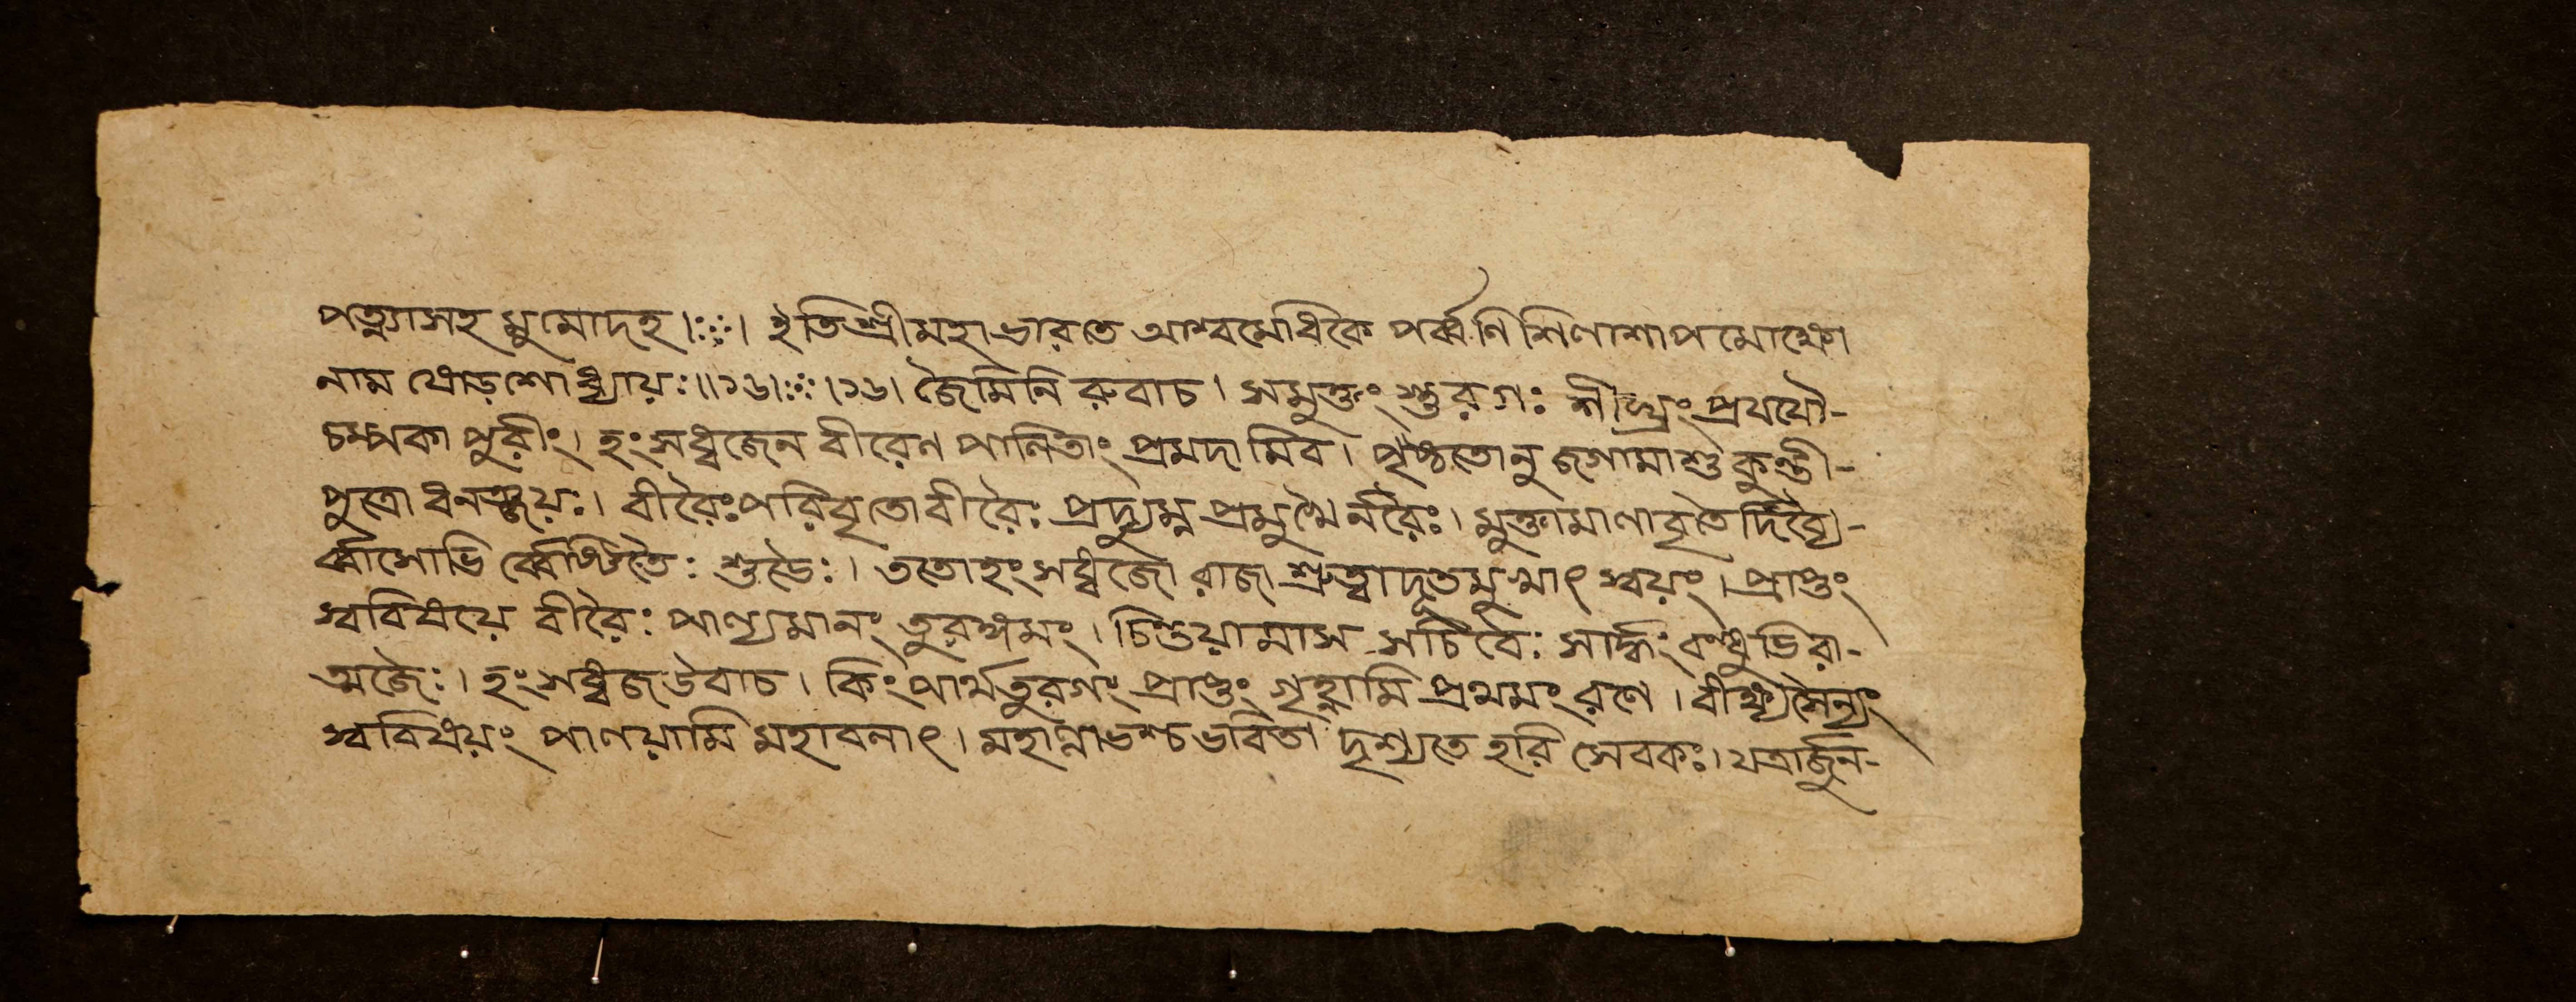 পত্ন্যাসহ মুমোদহ।ঃ৹ঃ। ইতিশ্রীমহাভারতে আশ্বমেধিকে পর্ব্বণি শিলাশাপমোক্ষো
নাম ষোড়শোধ্যায়ঃ॥১৬।ঃ৹ঃ।১৬। জৈমিনি রুবাচ। সমুক্তং স্তুরগঃ শীঘ্রং প্রযযৌ-
চম্পকা পুরীং। হংসধ্বজেন বীরেণ পালিতাং প্রমদা মিব। পৃষ্ঠতোনু জগামাশু কুন্তী-
পুত্রো ধনঞ্জয়ঃ। বীরৈঃপরিবৃতোবীরৈঃ প্রদ্যুম্ন প্রমুখৈ র্নরৈঃ। মুক্তামালাবৃতৈর্দিব্যৈ-
র্ব্বাসোভি র্ব্বেষ্টিতৈঃ শুভৈঃ। ততোহংসধ্বজো রাজা শ্রুত্বাদূতমুখাৎ স্বয়ং। প্রাপ্তং
স্ববিষয়ে বীরৈঃ পাল্যমানং তুরঙ্গমং। চিন্তয়ামাস সচিবৈঃ সার্দ্ধং বন্ধুভিরা-
ত্মজৈঃ। হংসধ্বজউবাচ। কিংপার্থতুরগং প্রাপ্তং গৃহ্নামি প্রথমং রণে। বীক্ষ্যসৈন্যং
স্ববিষয়ং পালয়ামি মহাবলাৎ। মহাল্লাভশ্চভবিতা দৃশ্যতে হরি সেবকঃ। যত্রার্জুন-